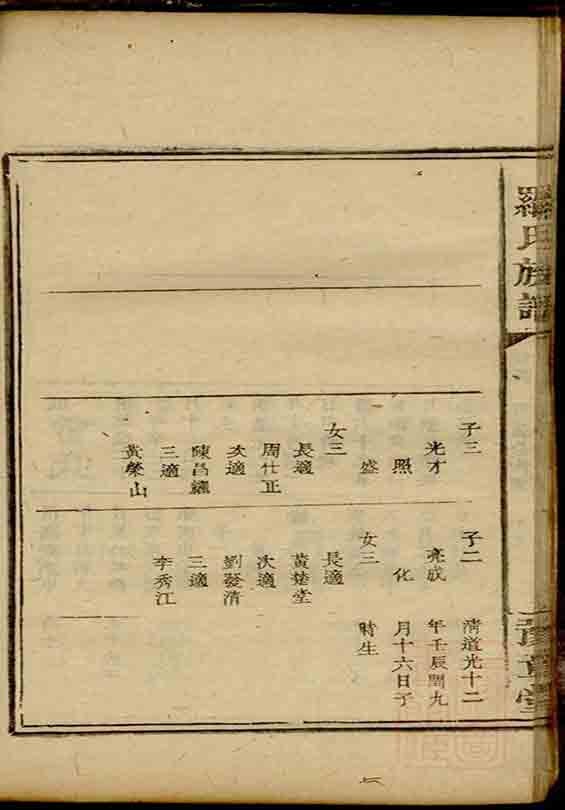 羅氏族譜
豫章堂
子三
光才
照
盛
女三
長適
周仕正
次適
陳昌纘
三適
黃榮山
子二
亮成
化
女三
長適
黃楚堂
次適
劉發清
三適
李秀江
清道光十二
年壬辰閏九
月十六日子
時生